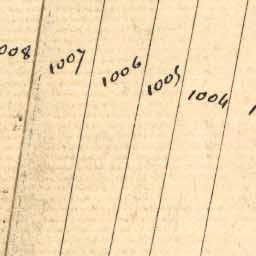 1008
1007
1006
1005
1004